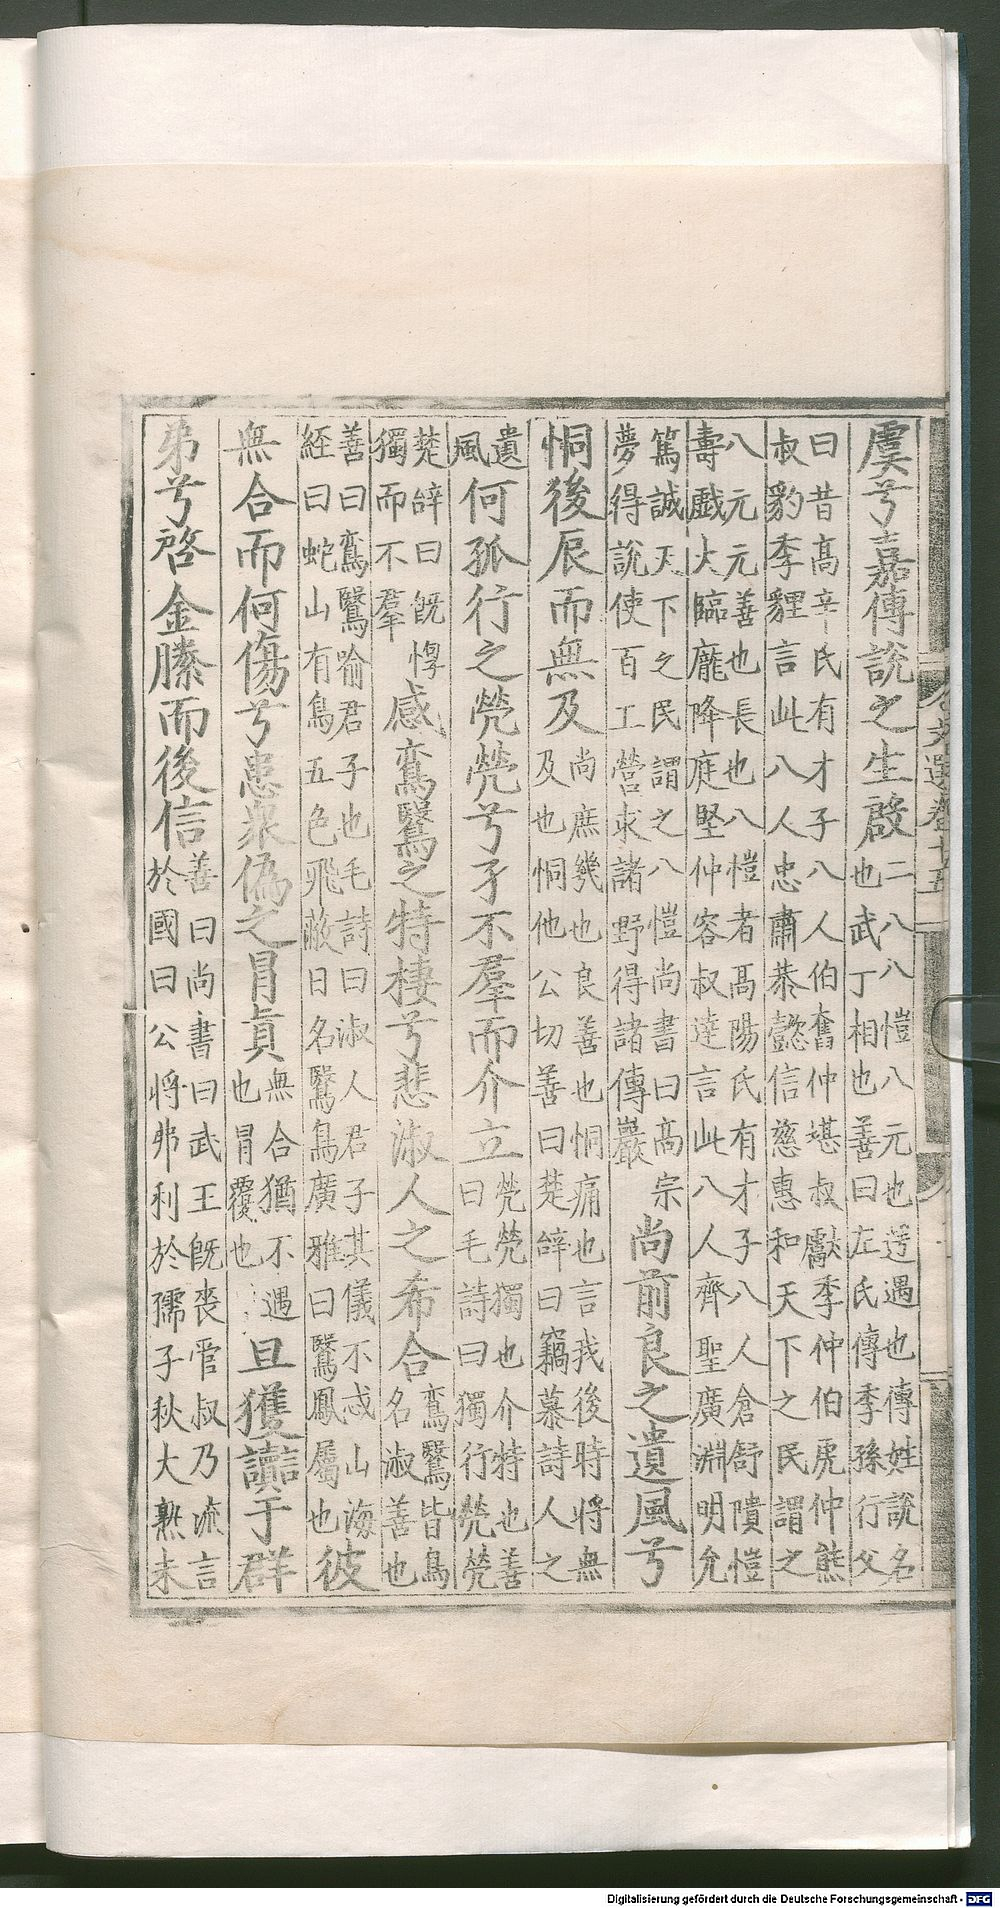 虞兮嘉傅說之生啟二八八愷八元也遌遇也傅姓說名也武丁相也善曰左氏傳季孫行父
曰昔髙辛氏有才子八人伯奮仲堪叔獻季仲伯虎仲熊叔豹季貍言此八人忠肅恭懿信慈惠和天下之民謂之
八元元善也長也八愷者髙陽氏有才子八人倉舒隤愷壽戲大臨龐降庭堅仲容叔逹言此八人齊聖廣淵明允
篤誠天下之民謂之八愷尚書曰髙宗夢得說使百工營求諸野得諸傅巖尚前良之遺風兮
恫後辰而無及尚庶幾也良善也恫痛也言我後時將無及也恫他公切善曰楚辭曰竊慕詩人之
遺風何孤行之煢煢兮孑不羣而介立煢煢獨也介特也善曰毛詩曰獨行煢煢
楚辭曰既惸獨而不羣感鸞鷖之特棲兮悲淑人之希合鸞鷖皆鳥名淑善也
善曰鸞鷖喻君子也毛詩曰淑人君子其儀不忒山海經曰蛇山有鳥五色飛蔽日名鷖鳥廣雅曰鷖鳳屬也彼
無合而何傷兮患衆偽之冐真無合猶不遇也冐覆也旦獲讟于群
弟兮啓金縢而後信善曰尚書曰武王既喪管叔乃流言於國曰公將弗利於孺子秋大熟未
文選卷十五
Digitalisierung gefördert durch die Deutsche Forschungsgemeinschaft - DFG